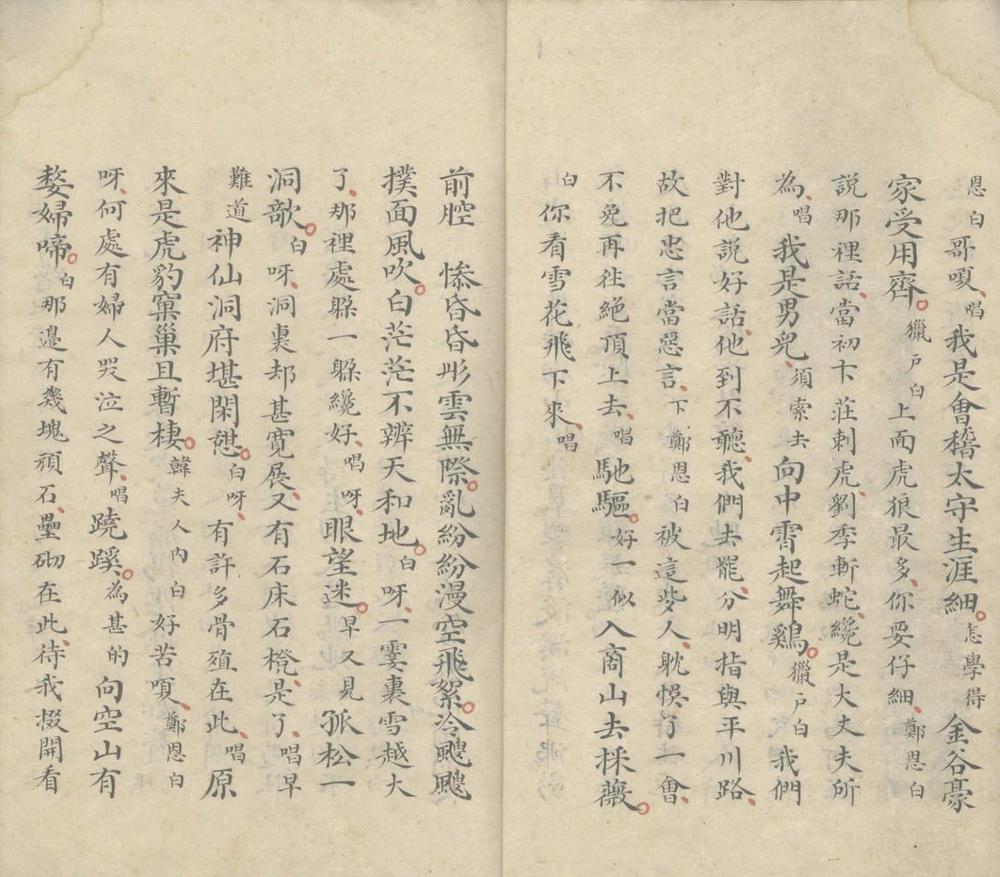 恩白哥嗄唱我是會稽太守生涯細怎學得金谷豪
家受用齊獵戶白上面虎狼最多你要仔細鄭恩白
說那裡話當初卞莊刺虎劉季斬蛇纔是大丈夫所
為唱我是男兒須索去向中霄起舞鷄獵戶白我們
對他說好話他到不聽我們去罷分明指與平川路
故把忠言當惡言下鄭恩白被這些人耽悞了一會
不免再徃絶頂上去唱馳驅好一似入商山去採薇
白你看雪花飛下來唱
前腔慘昏昏彤雲無際亂紛紛漫空飛絮冷颼颼
撲面風吹白茫茫不辨天和地白呀一霎裏雪越大
了那裡處躲一躲纔好唱呀眼望迷早又見孤松一
洞欹白呀洞裏却甚寬展又有石床石櫈是了唱早
難道神仙洞府堪閑憇白呀有許多骨殖在此唱原
來是虎豹窠巢且暫棲韓夫人內白好苦嗄鄭恩白
呀何處有婦人哭泣之聲唱蹺蹊為甚的向空山有
嫠婦啼白那邊有幾塊頑石壘砌在此待我掇開看